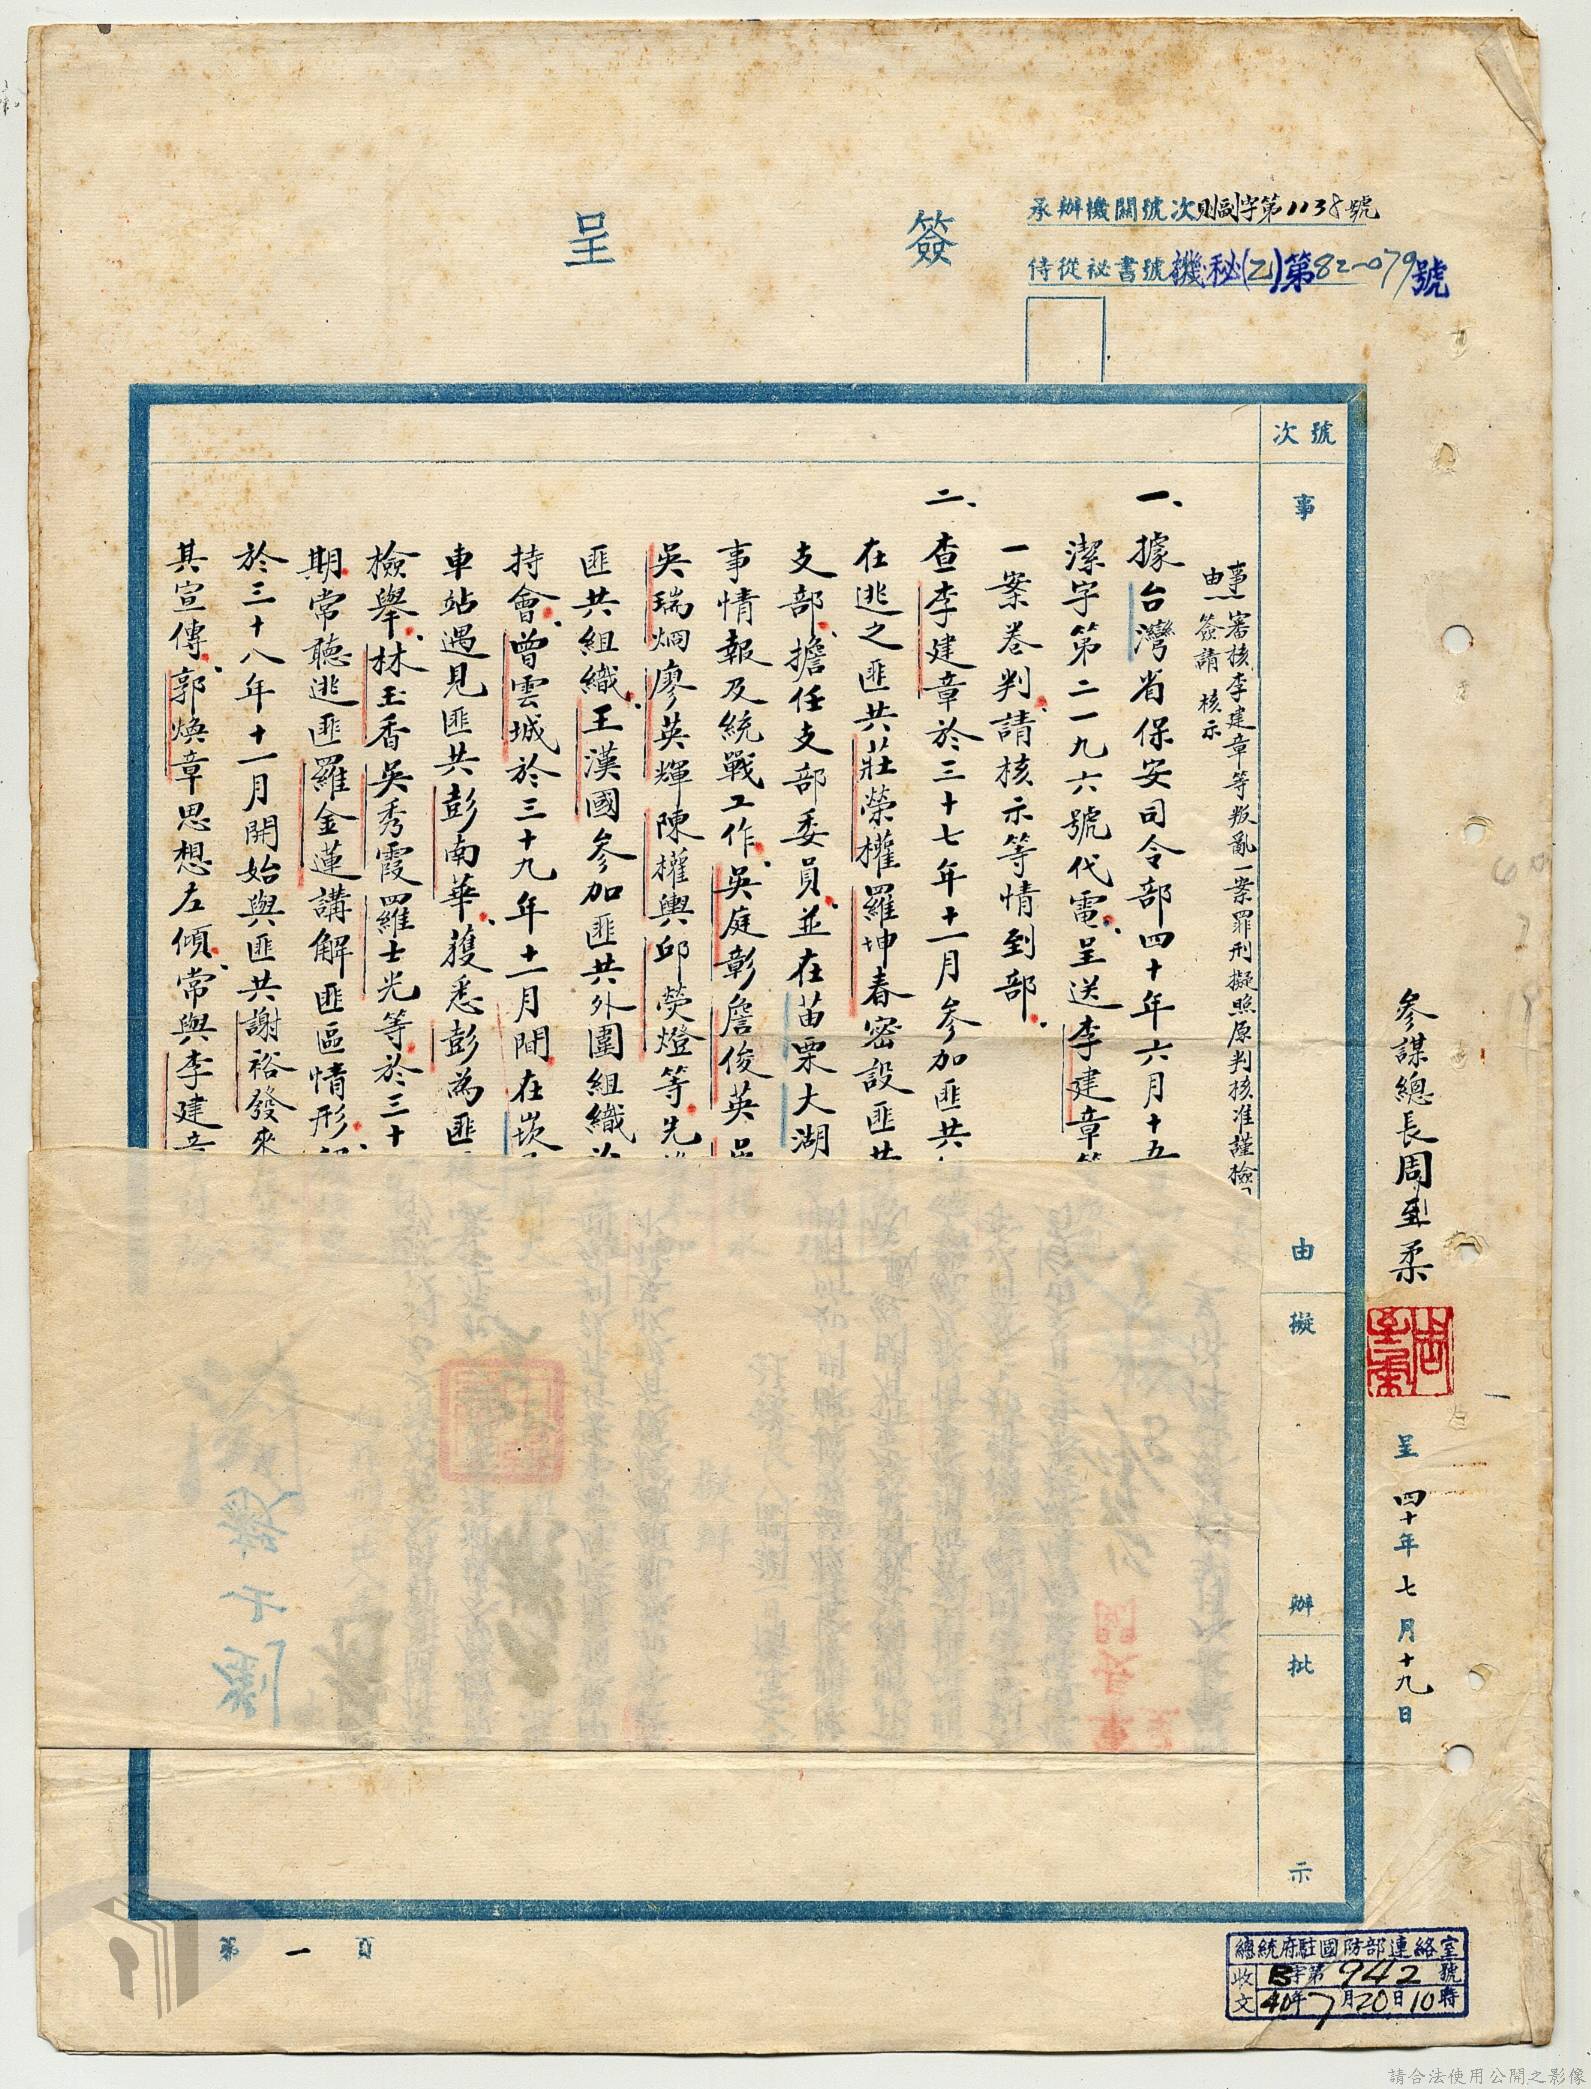 簽呈
承辦機關號次則副字第1138號
侍從祕書號機秘(乙)第82-079號
參謀總長周至柔
呈 四十年七月十九日
號次
事由
擬辦
批示
事由 審核李建章等叛亂一案罪刑擬照原判核准謹檢
簽請 核示
一、據台灣省保安司令部四十年六月十五
潔字第二一九六號代電呈送李建章等
一案卷判請核示等情到部
二、查李建章於三十七年十一月參加匪共
在逃之匪共莊榮權羅坤春密設匪共
支部擔任支部委員並在苗栗大湖
事情報及統戰工作吳庭彰詹俊英
吳瑞炯廖英輝陳權輿邱熒燈等先
匪共組織王漢國參加匪共外圍組織
持會曾雲城於三十九年十一月間在崁
車站遇見匪共彭南華獲悉彭為匪
檢舉林玉香吳秀霞羅士光等於三十
期常聽逃匪羅金蓮講解匪區情形
於三十八年十一月開始與匪共謝裕發來
其宣傳郭煥章思想左傾常與李建章
第一頁
總統府駐國防部連絡室
收文 B字第942號
40年7月20日10時
請合法使用公開之影像